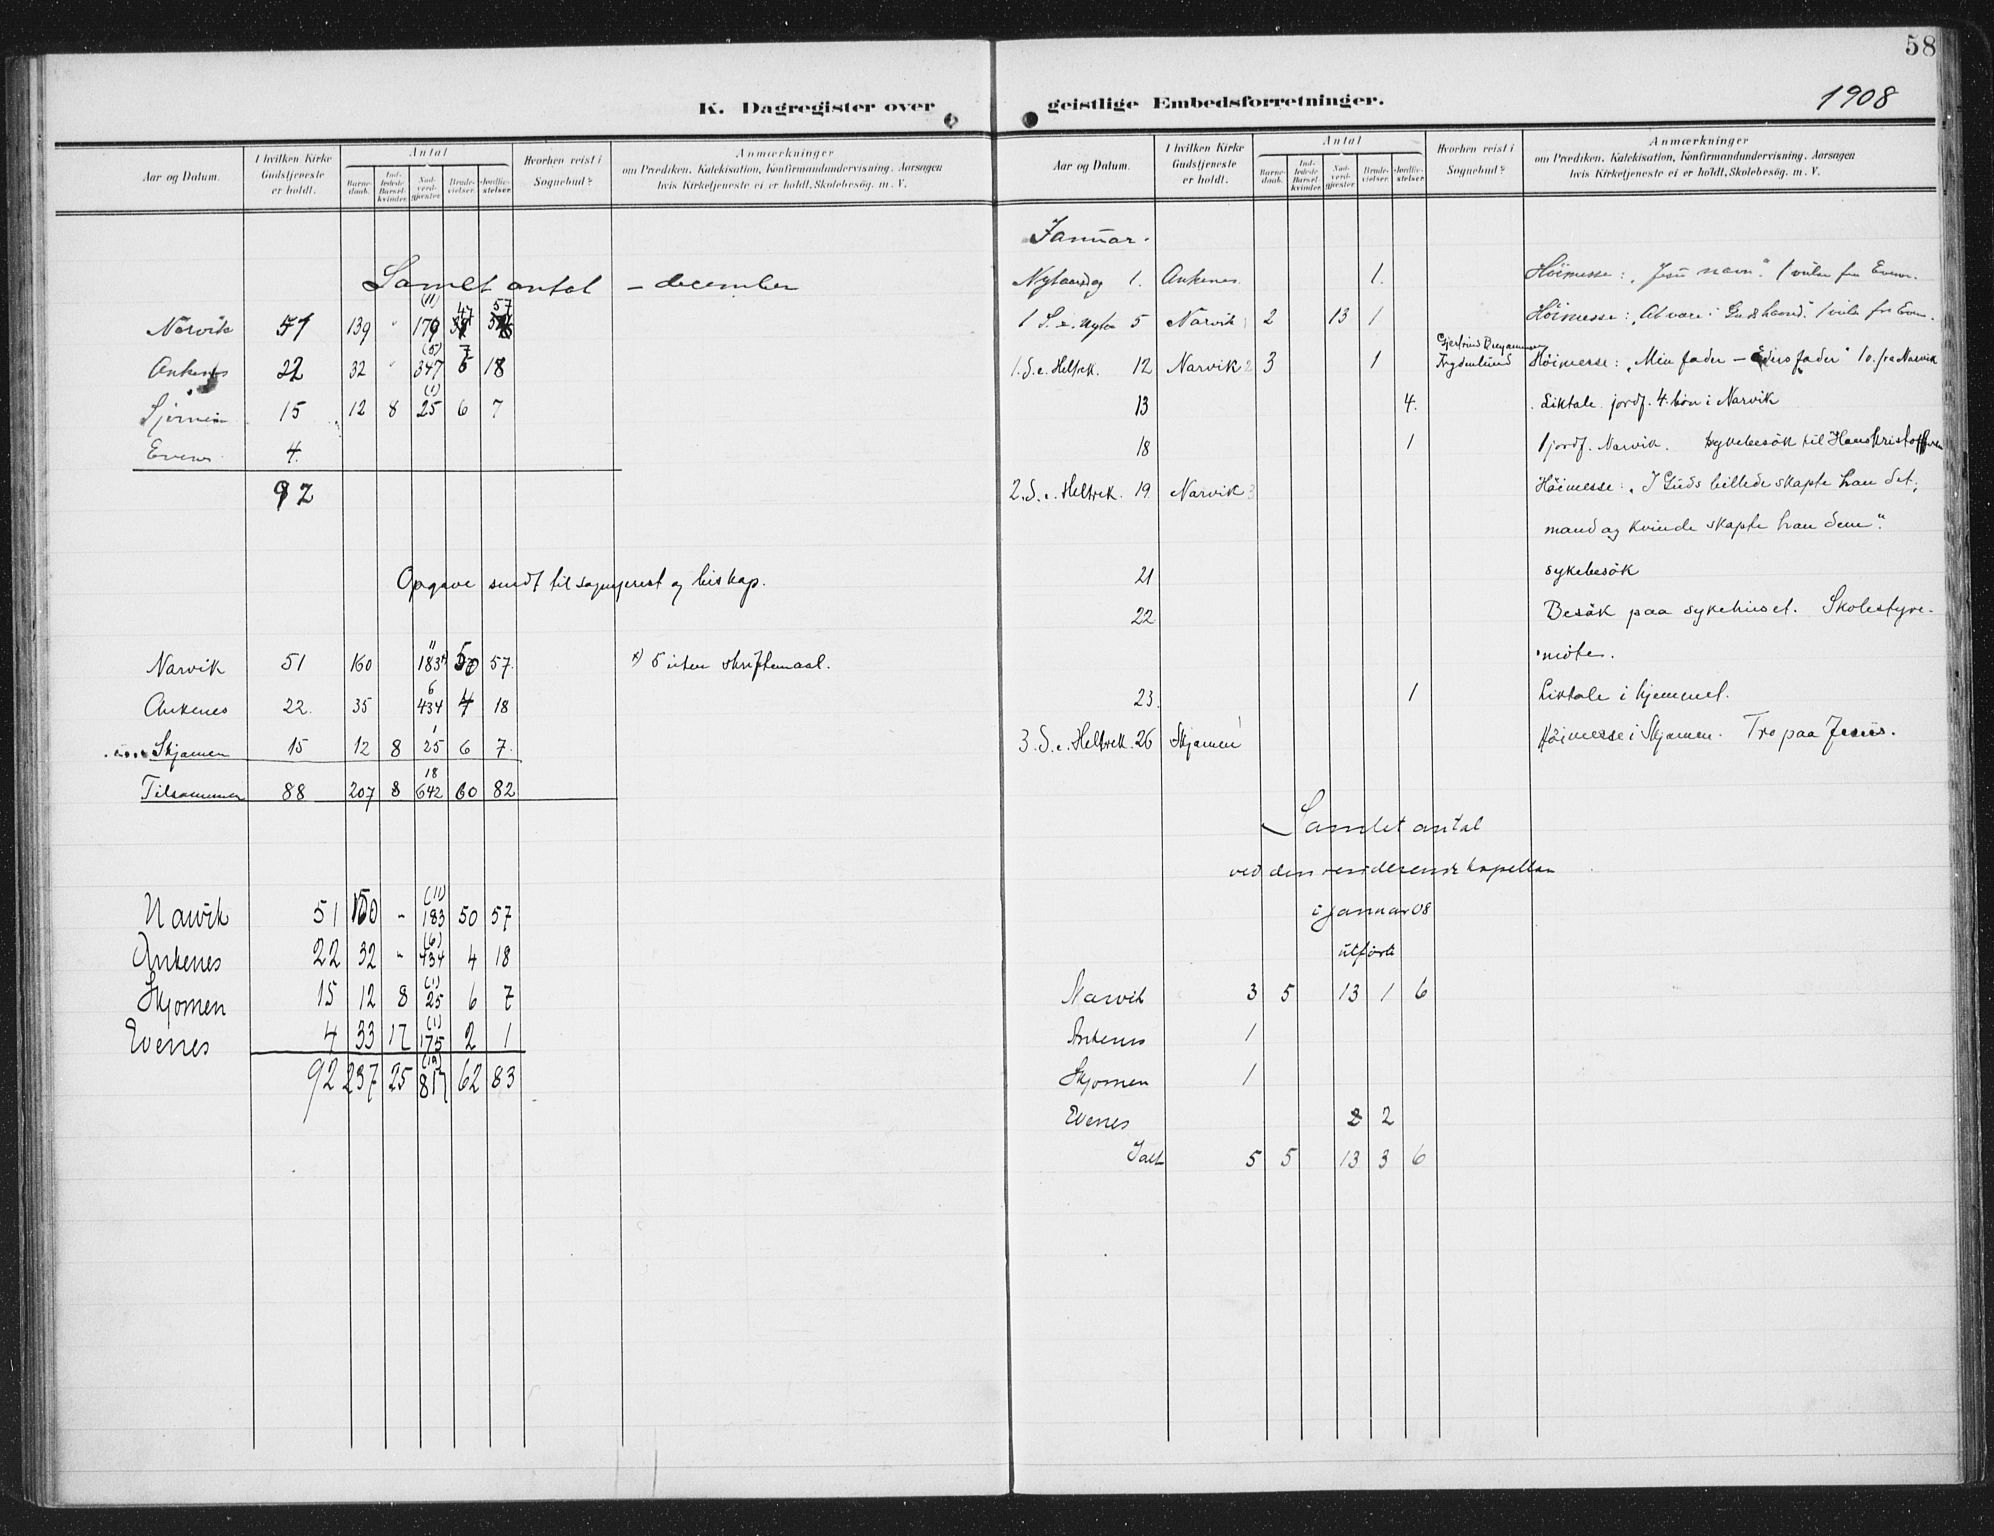 58
1908
K. Dagregister over geistlige Embedsforretninger.
Aar og Datum.
I hvilken Kirke Gudstjeneste er holdt.
Antal
Barne-daab.
Ind-ledede Barsel-kvinder.
Nad-verd-gjester.
Brude-vielser.
Jordfæ-stelser.
Hvorhen reist i Sognebud?
Anmærkninger
om Prædiken, Katekisation, Konfirmandundervisning. Aarsagen
hvis Kirketjeneste ei er holdt, Skolebesøg. m. V.
Samlet antal – december
Narvik 51 139 " (11) 47 57
Ankenes 22 32 " (5) 347 7 18
15 12 8 (1) 25 6 7
Evenes 4
92
Opgave sendt til sogneprest og biskop.
Narvik 51 160 11 183 x) 50 57 x) 5 uten skriftemaal.
Ankenes 22 35 6 434 4 18
Skjomen 15 12 8 1 25 6 7
Tilsammen 88 207 8 18 642 60 82
Narvik 51 160 - (11) 183 50 57
Ankenes 22 32 - (6) 434 4 18
Skjomen 15 12 8 (1) 25 6 7
Evenes 4 33 17 (1) 175 2 1
92 237 25 (19) 817 62 83
Aar og Datum.
I hvilken Kirke Gudstjeneste er holdt.
Antal
Barne-daab.
Ind-ledede Barsel-kvinder.
Nad-verd-gjester.
Brude-vielser.
Jordfæ-stelser.
Hvorhen reist i Sognebud?
Anmærkninger
om Prædiken, Katekisation, Konfirmandundervisning. Aarsagen
hvis Kirketjeneste ei er holdt, Skolebesøg. m. V.
Januar.
Nytaarsdag 1. Ankenes 1. Höimesse: "Jesu navn". 1 vielse fra Evenes.
1 S. e. Nytaar 5 Narvik 1 2 13 1 Höimesse: "At være i Guds haand". 1 vielse fra Evenes.
1. S. e. Heltrek. 12 Narvik 2 3 1 Höimesse: "Min fader – Eders fader" 1 b. fra Narvik
13 4. Liktale. jordf. 4 barn i Narvik
18 1 1 jordf. Narvik. Sykebesök til Hans Kristoffersen
2. S. e. Heltrek. 19 Narvik 3 Höimesse: "I Guds billede skapte han det;
mand og kvinde skapte han dem".
21 sykebesök
22 Besök paa sykehuset. Skolestyre-
möte.
23. 1 Liktale i hjemmet.
3. S. e. Heltrek. 26 Skjomen 1 Höimesse i Skjomen. Tro paa Jesus.
Samlet antal
ved den residerende kapellan
i januar 08
utförte
Narvik 3 5 13 1 6
Ankenes 1
Skjomen 1
Evenes 2 2
Ialt 5 5 13 3 6